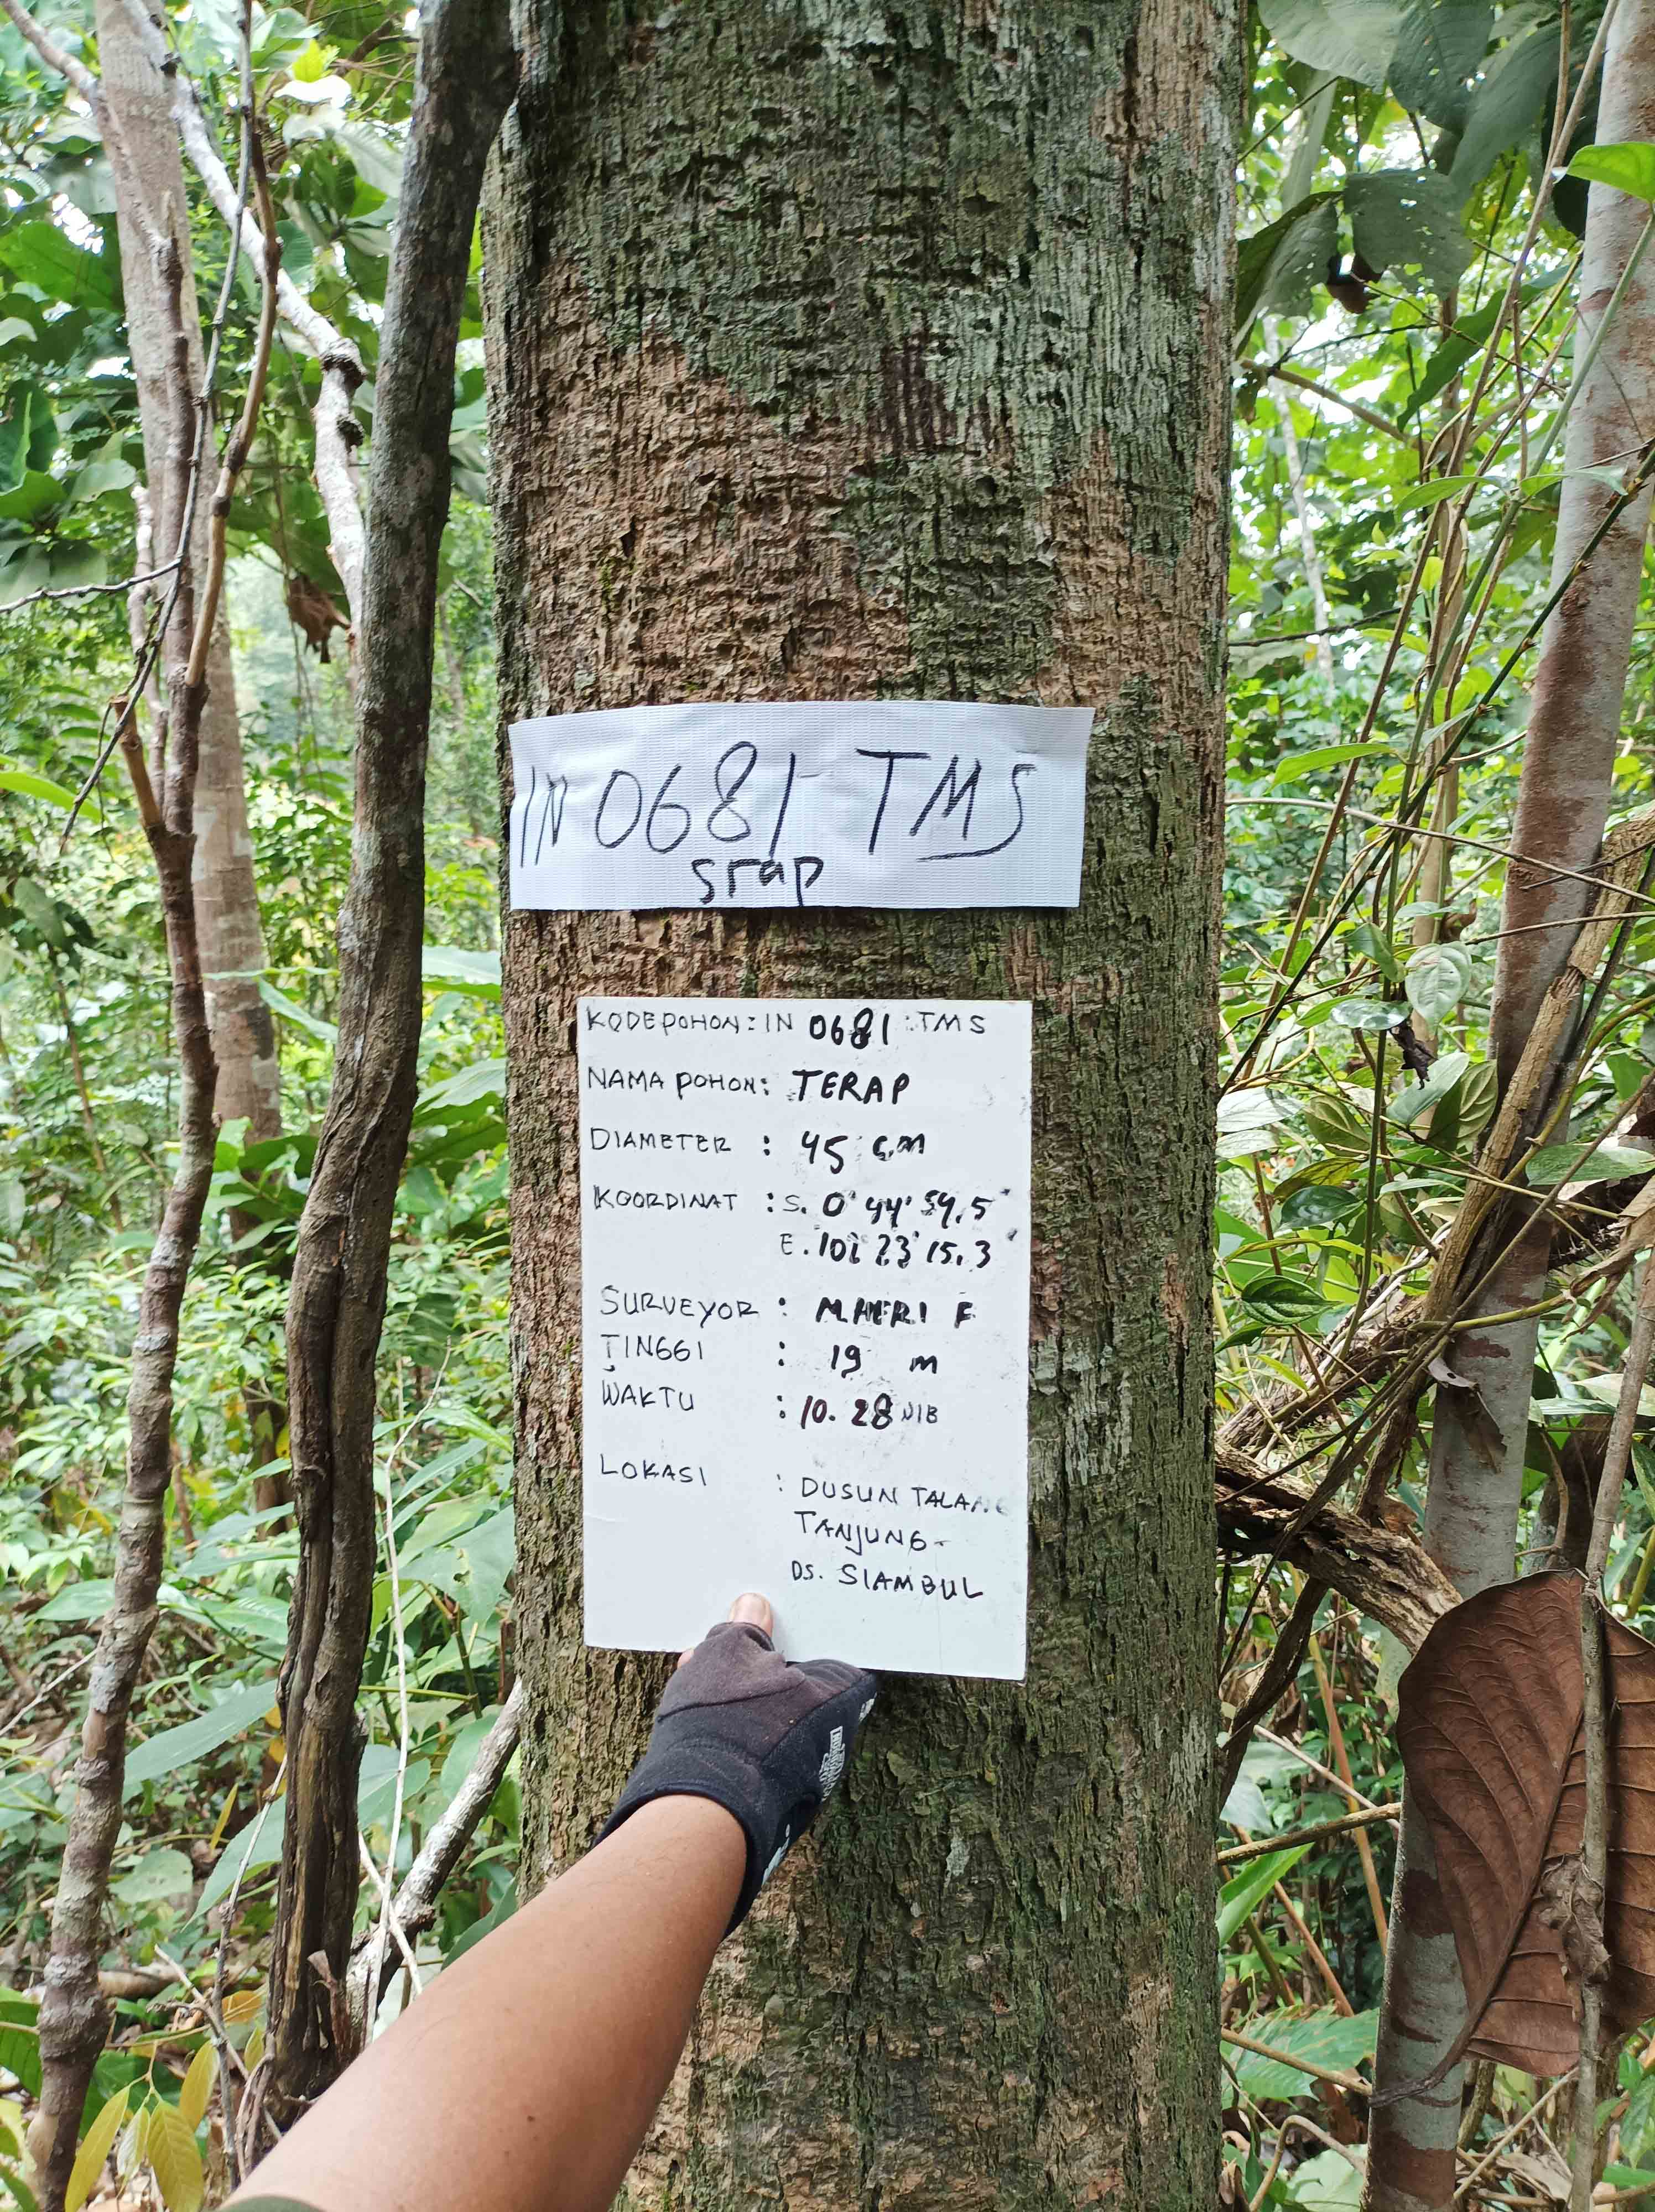 IN 0681 TMS
srap
KODE POHON : IN 0681 : TMS
NAMA POHON : TERAP
DIAMETER : 45 CM
KOORDINAT : S. 0° 44' 54.5"
E. 101° 23' 15.3"
SURVEYOR : M.HERI F
TINGGI : 19 m
WAKTU : 10. 28 WIB
LOKASI : DUSUN TALANG
TANJUNG -
DS. SIAMBUL